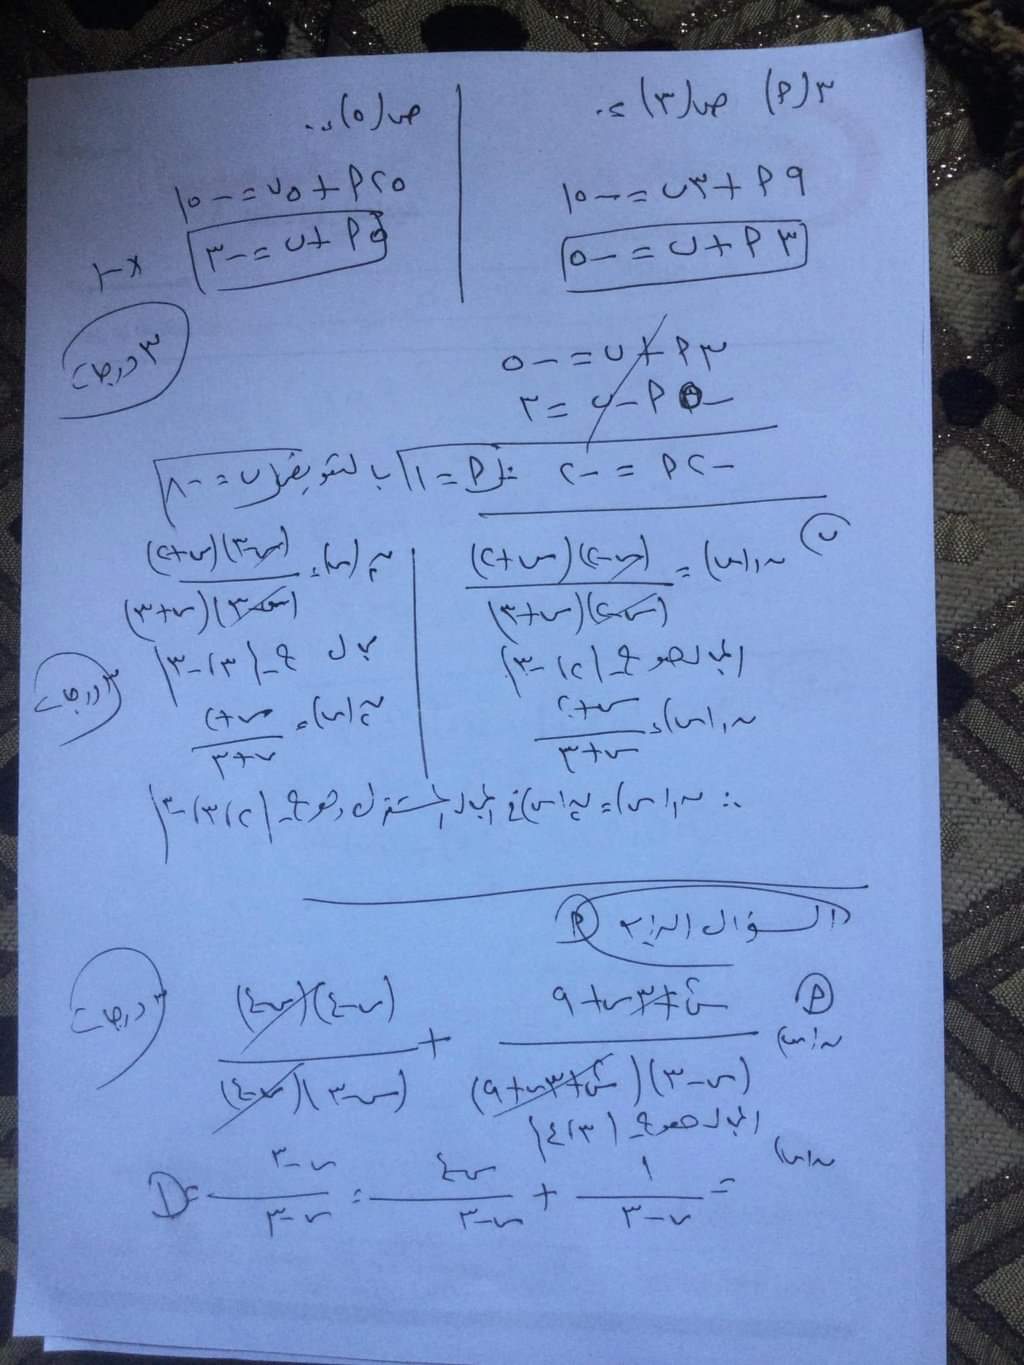 ٣ (٩) ص(٣) = ٠
٩ ٩ + ٣ ب = -١٥
٣ ٩ + ب = -٥
ص(٥) = ٠
٢٥ ٩ + ٥ ب = -١٥
٥ ٩ + ب = -٣
× -١
٣ درجات
٣ ٩ + ب = -٥
-٥ ٩ - ب = ٣
-٢ ٩ = -٢ ٩ = ١ بالتعويض ب = -٨
ب
ن١(س) = (س-٢)(س+٢) / (س-٢)(س+٣)
المجال هو ح - {٢، -٣}
ن١(س) = س+٢ / س+٣
ن٢(س) = (س-٣)(س+٢) / (س-٣)(س+٣)
مجال ح - {٣، -٣}
ن٢(س) = س+٢ / س+٣
٣ درجات
∴ ن١(س) = ن٢(س) في المجال المشترك وهو ح - {٢، ٣، -٣}
السؤال الرابع ٩
٩ ن(س) = س² + ٣س + ٩ / (س-٣)(س² + ٣س + ٩) + (س-٤)(س-٤) / (س-٣)(س-٤)
٣ درجات
المجال هو ح - {٣، ٤}
ن(س) = ١ / س-٣ + س-٤ / س-٣ = س-٣ / س-٣ = ١